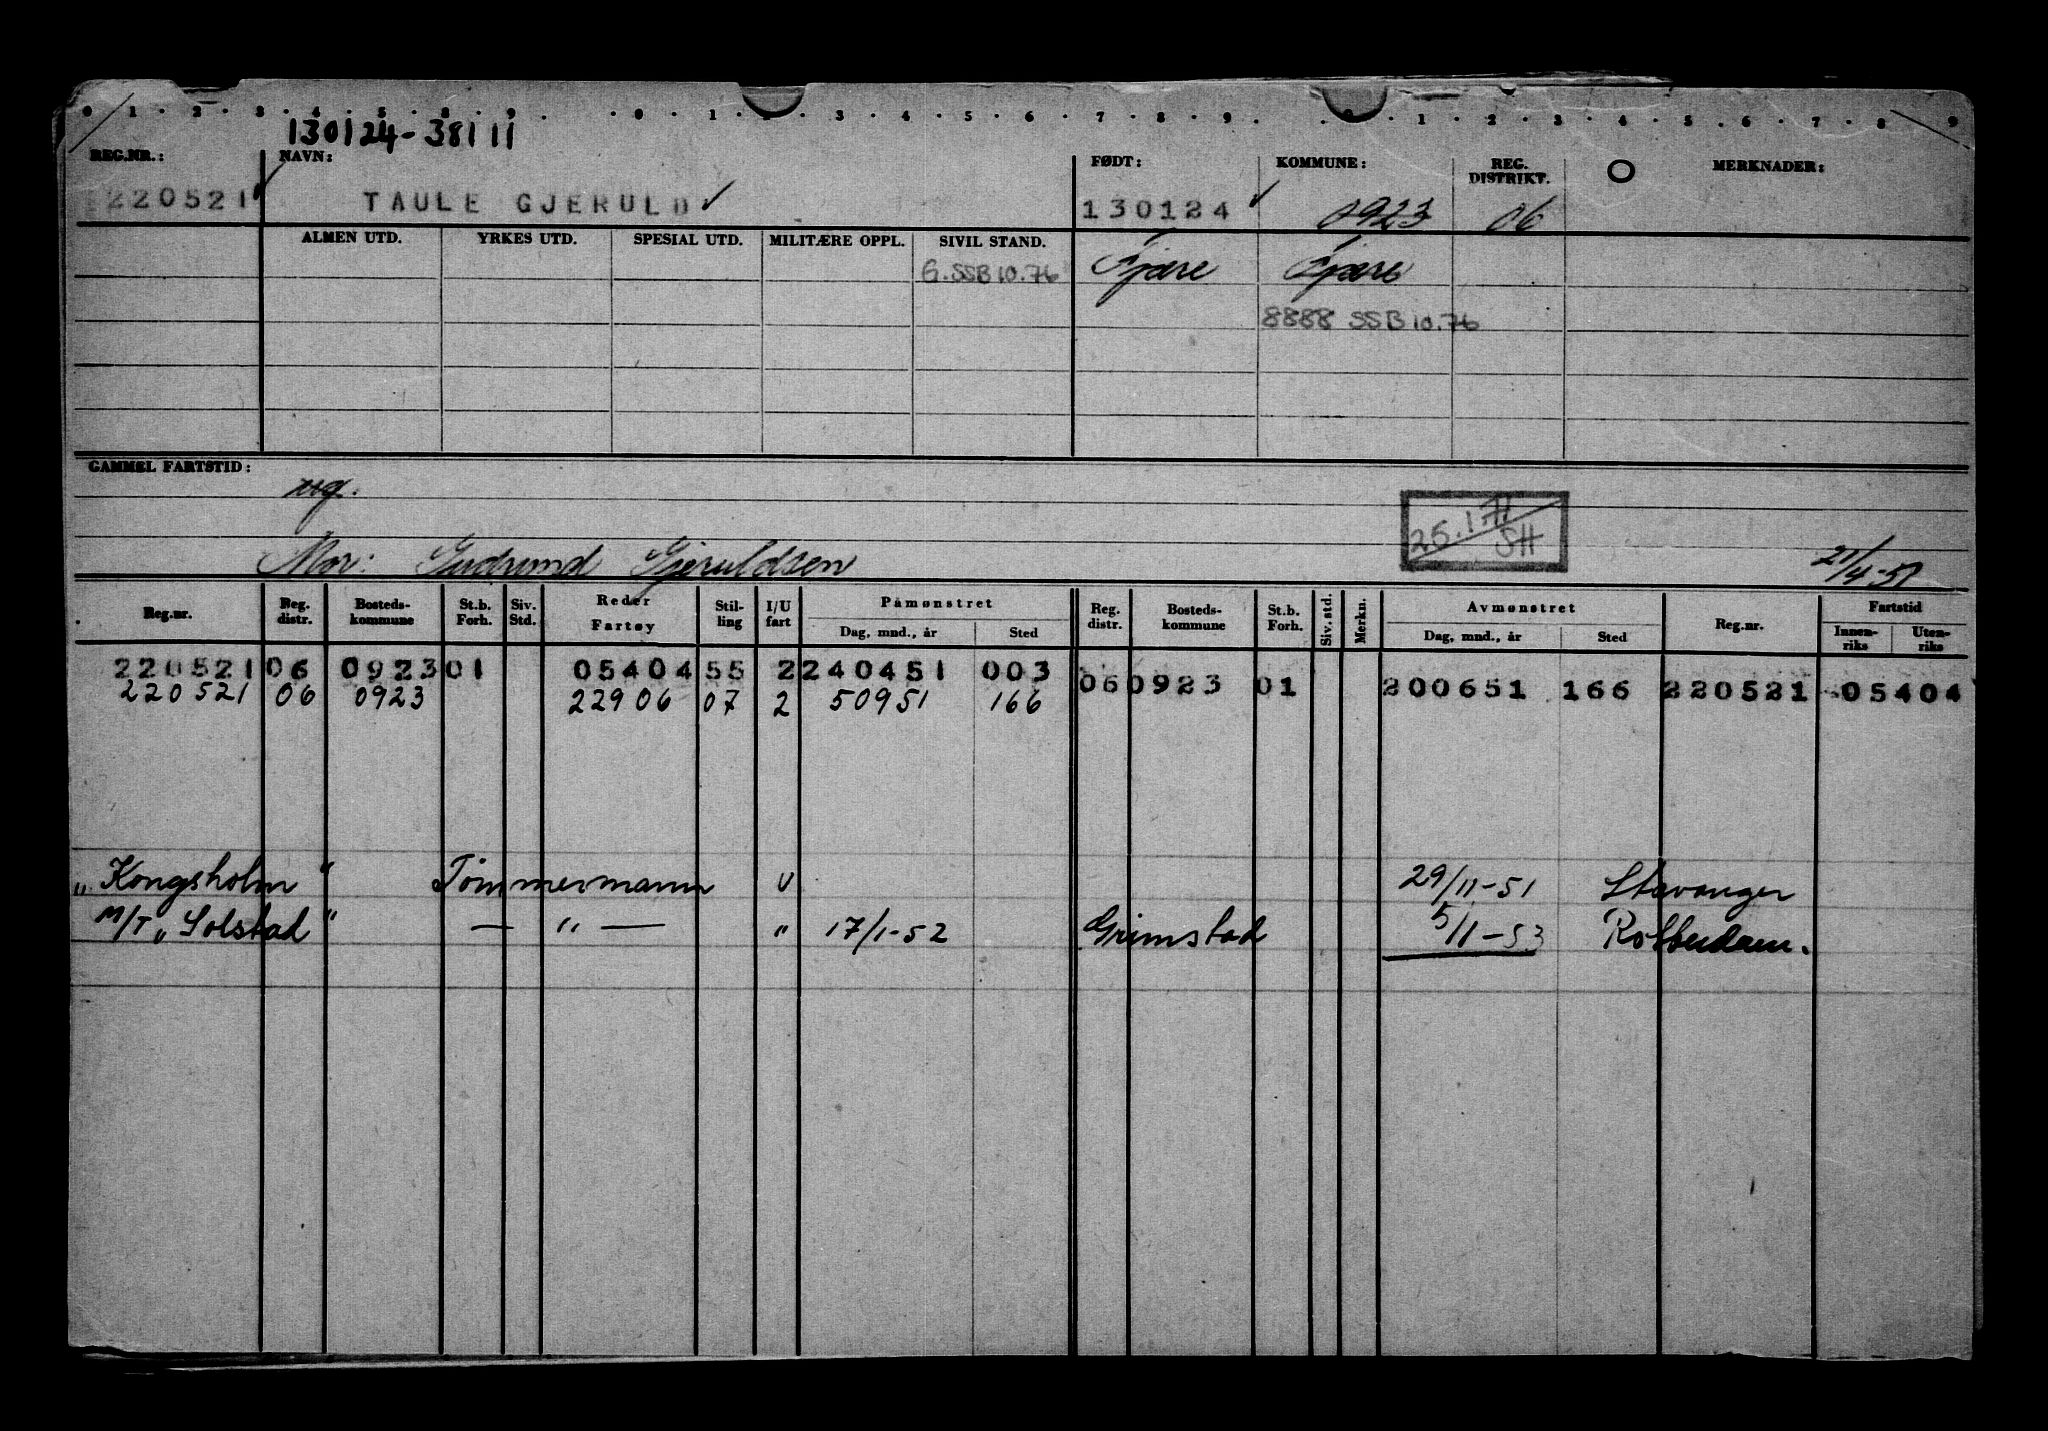 0 1 2 3 4 5 8 9 0 1 2 3 4 5 6 7 8 9 0 1 2 3 4 5 6 7 8 9
130124-38111
REG.NR.: NAVN: FØDT: KOMMUNE: REG. DISTRIKT. O MERKNADER:
220521 ✓ TAULE GJERULD ✓ 130124 ✓ 0923 06
ALMEN UTD. YRKES UTD. SPESIAL UTD. MILITÆRE OPPL. SIVIL STAND.
G.SSB 10.76 Fjære Fjære
8888 SSB 10.76
GAMMEL FARTSTID:
25.1.71
SH
Mor: Gudrund Gjeruldsen 21/4-51
Reg.nr. Reg. distr. Bosteds-kommune St.b. Forh. Siv. Std. Reder Fartøy Stil-ling I/U fart Påmønstret Dag, mnd., år Sted Reg. distr. Bosteds-kommune St.b. Forh. Siv. std. Merkn. Avmønstret Dag, mnd., år Sted Reg.nr. Fartstid Innen-riks Uten-riks
220521 06 0923 01 05404 55 2 240451 003 06 0923 01 200651 166 220521 05404
220521 06 0923 22906 07 2 50951 166
„Kongsholm" Tømmermann U 29/11-51 Stavanger
M/T „Solstad" — " — " 17/1-52 Grimstad 5/11-53 Rotterdam.